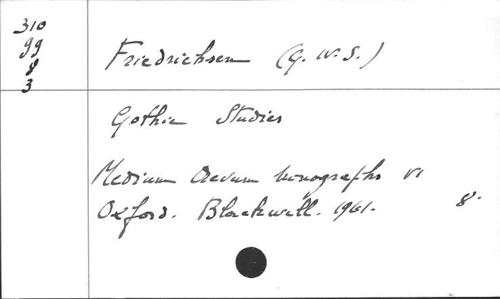 310
99
8
3
Friedrichsen (G. W. S.)
Gothic Studies
Medium Aevum Monographs VI
Oxford. Blackwell. 1961. 8.